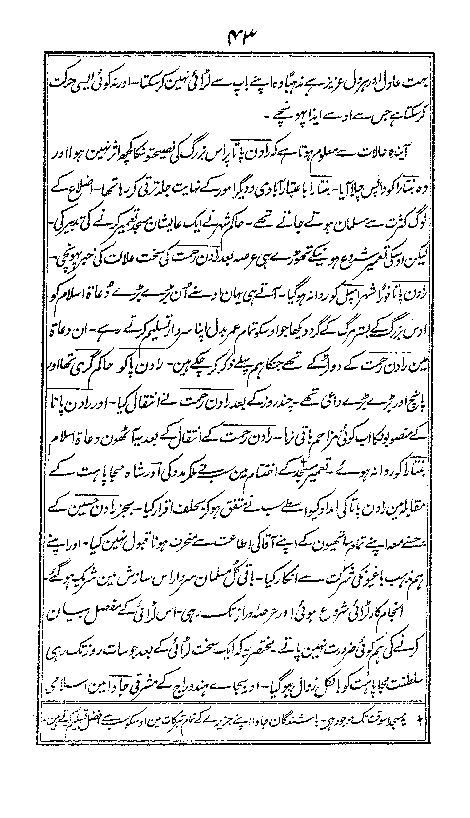 ۴۳
بہت عادل اور ہر دل عزیز ہے نہ چاہا وہ اپنے باپ سے لڑائی نہین کر سکتا - اور نہ کوئی ایسی حرکت
کر سکتا ہے جس سے اوسے ایذا پہونچے -
آیندہ حالات سے معلوم ہوتا ہے کہ رادن پاتا پر اس بزرگ کی نصیحتونکا کچھ اثر نہین ہوا اور
وہ بنتارا کو واپس چلا آیا - بنتارا باعتبار آبادی و دیگر امور کے نہایت جلد ترقی کر رہا تھا - اضلاع کے
لوگ کثرت سے مسلمان ہوتے جاتے تھے - حاکم شہر نے ایک عالیشان مسجد تعمیر کرنے کی تدبیر کی -
لیکن اوسکی تعمیر شروع ہونیکے تھوڑے ہی عرصہ بعد رادن رحمت کی سخت علالت کی خبر پہونچی -
رادن پاتا فوراً شہر امپل کو روانہ ہو گیا - آتے ہی یہان اوسنے اُن بڑے بڑے دُعاة اسلام کو
اوس بزرگ کے بستر مرگ کے گرد دیکھا جو اوسکو تمام عمر بدل اپنا سردار تسلیم کرتے رہے - ان دعاة
مین رادن رحمت کے دو لڑکے تھے جنکا ہم پہلے ذکر کر چکے ہین - رادن پاکو حاکم گری تھا اور
پانچ اور بڑے بڑے داعی تھے - چند روز کے بعد رادن رحمت نے انتقال کیا - اور رادن پاتا
کے منصوبونکا اب کوئی مزاحم باقی نرہا - رادن رحمت کے انتقال کے بعد یہ آٹھون دعاة اسلام
بنتارا کو روانہ ہوئے - تعمیر مسجد کے اختتام مین سب نے ملکر مدد کی اور شاہ مجاپاہت کے
مقابلہ مین رادن پاتا کی امداد کیواسطے سب نے متفق ہو کر بحلف اقرار کیا - بجز رادن حسین کے
جسنے معہ اپنے تمام ساتھیون کے اپنے آقا کی اطاعت سے منحرف ہونا قبول نہین کیا - اور اپنے
ہم مذہب باغیونکی شرکت سے انکار کیا - باقی کُل مسلمان سردار اس سازش مین شریک ہو گئے -
انجام کار لڑائی شروع ہوئی اور عرصہ دراز تک رہی - اس لڑائی کے مفصل بیان
کرنے کی ہم کوئی ضرورت نہین پاتے - مختصر یہ کہ ایک سخت لڑائی کے بعد جو سات روز تک رہی
سلطنت مجاپاہت کو بالکل زوال ہو گیا - اور بجاے ہندو راج کے مشرقی جاوا مین اسلامی
* یہ مسجد اسوقت تک موجود ہی - باشندگان جاوا اپنے جزیرے کے تمام متبرکات مین اوسکو سب سے افضل خیال کرتے ہین -